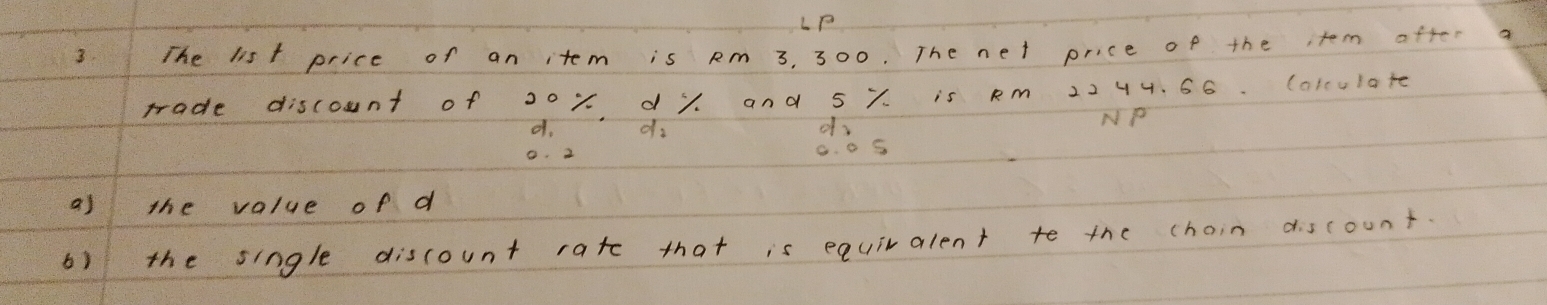 LP
3. The list price of an item is RM 3,300. The net price of the item after a
trade discount of 20%. d% and 5% is RM 2244.66. Calculate
d1 d2 d3 NP
0.2 0.05
a) the value of d
b) the single discount rate that is equivalent to the chain discount.